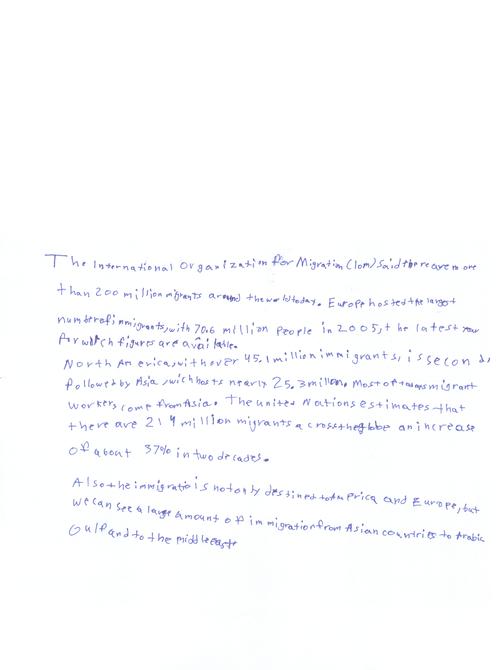 The International Organization for Migration (Iom) said there are more
than 200 million migrants around the world today. Europe hosted the largest
number of immigrants, with 70.6 million people in 2005, the latest year
for which figures are available.
North America, with over 45.1 million immigrants, is second,
followed by Asia, wich hosts nearly 25.3 million. Most of migrant
workers come from Asia. The united Nations estimates that
there are 214 million migrants across the globe an increase
of about 37% in two decades.
Also the immigratio is not only destined to America and Europe, but
we can see a large amount of immigration from Asian countries to Arabic
Gulf and to the middle